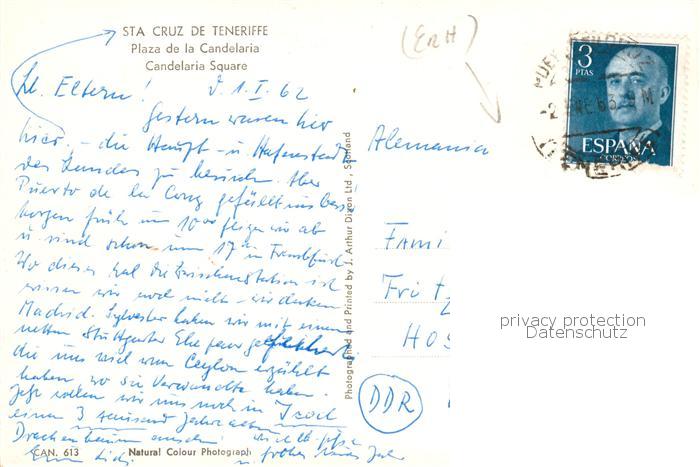 STA CRUZ DE TENERIFFE
Plaza de la Candelaria
Candelaria Square
Lb. Eltern! d. 1. I. 62
Gestern waren wir
hier – die Haupt- u. Hafenstadt
des Landes zu besuch. Aber
Puerto de la Cruz gefällt uns bess.
Morgen früh um 10⁰⁰ fliegen wir ab
u. sind schon um 17⁰⁰ in Frankfurt.
Wo dieses Mal die Zwischenstation ist
wissen wir noch nicht – wir denken
Madrid. Sylvester haben wir mit einem
netten Stuttgarter Ehepaar gefeiert
die uns viel von Ceylon erzählt
haben, wo sie Verwandte haben.
Jetzt wollen wir uns noch in Icod
einen 3 tausend Jahre alten
Drachenbaum ansehen!
frohes neues Jahr
CAN. 613 Natural Colour Photograph
Photographed and Printed by J. Arthur Dixon Ltd., Scotland
(ERH)
3
PTAS
ESPAÑA
CORREOS
Alemania
FAMI
Fritz
HOS
DDR
privacy protection
Datenschutz